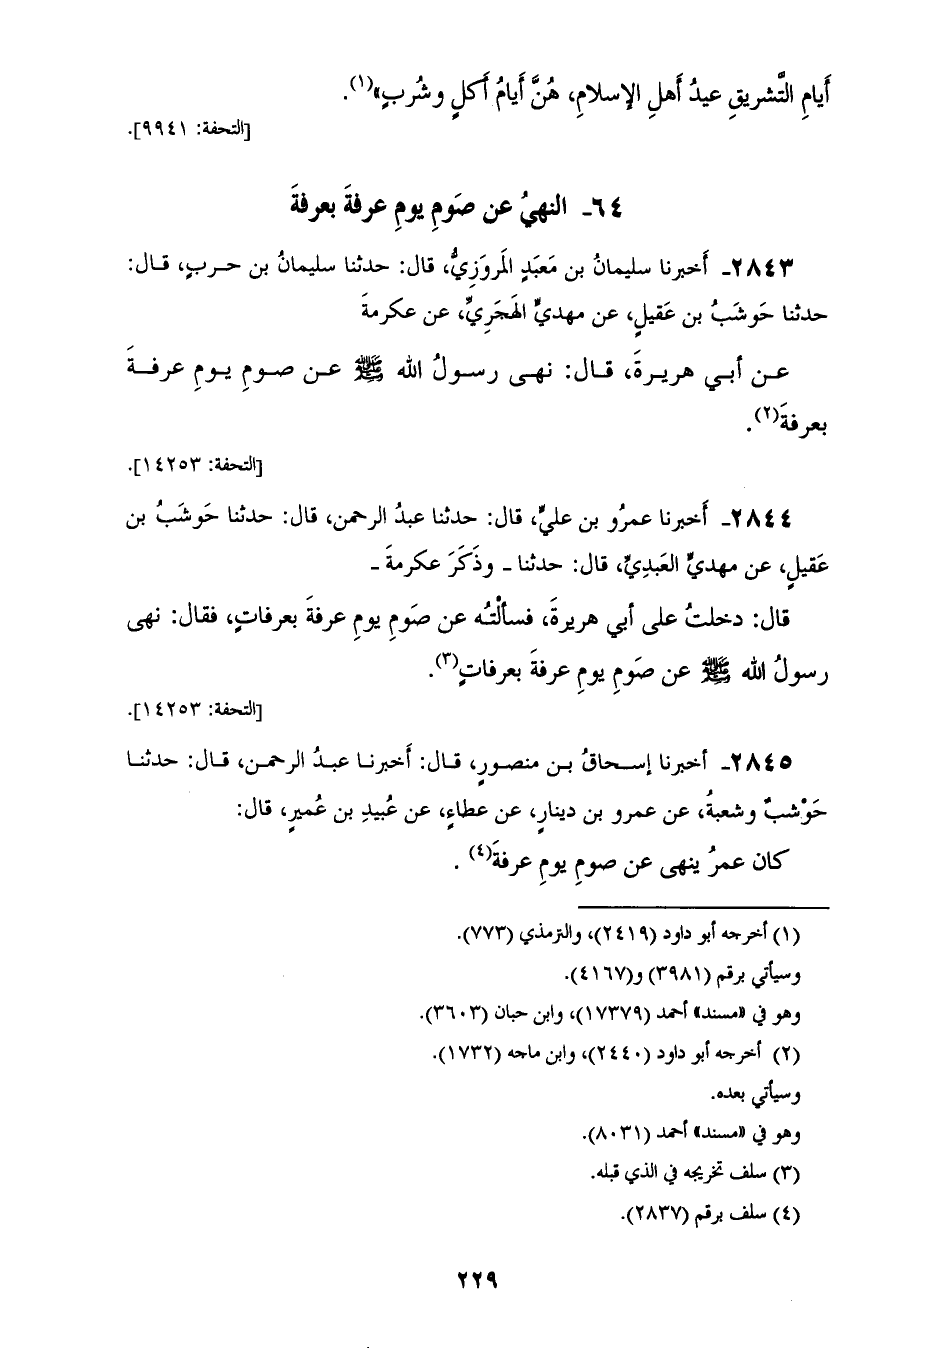 أَيامِ التَّشريقِ عيدُ أَهلِ الإسلامِ، هُنَّ أَيامُ أَكلٍ وشُربٍ»(١).
[التحفة: ٩٩٤١].
٦٤ـ النهيُ عن صَومِ يومِ عرفةَ بعرفةَ
٢٨٤٣ـ أَخبرنا سليمانُ بن مَعبَدٍ المَروَزِيُّ، قال: حدثنا سليمانُ بن حربٍ، قال:
حدثنا حَوشَبُ بن عَقيلٍ، عن مهديٍّ الهَجَرِيِّ، عن عكرمةَ
عن أبي هريرةَ، قال: نهى رسولُ الله ﷺ عن صومِ يومِ عرفةَ
بعرفةَ(٢).
[التحفة: ١٤٢٥٣].
٢٨٤٤ـ أَخبرنا عمرُو بن عليٍّ، قال: حدثنا عبدُ الرحمن، قال: حدثنا حَوشَبُ بن
عَقيلٍ، عن مهديٍّ العَبدِيِّ، قال: حدثنا ـ وذَكَرَ عكرمةَ ـ
قال: دخلتُ على أبي هريرةَ، فسألْتُه عن صَومِ يومِ عرفةَ بعرفاتٍ، فقال: نهى
رسولُ الله ﷺ عن صَومِ يومِ عرفةَ بعرفاتٍ(٣).
[التحفة: ١٤٢٥٣].
٢٨٤٥ـ أخبرنا إسحاقُ بن منصورٍ، قال: أَخبرنا عبدُ الرحمن، قال: حدثنا
حَوْشبٌ وشعبةُ، عن عمرو بن دينارٍ، عن عطاءٍ، عن عُبيدِ بن عُميرٍ، قال:
كان عمرُ ينهى عن صومِ يومِ عرفةَ(٤).
(١) أخرجه أبو داود (٢٤١٩)، والترمذي (٧٧٣).
وسيأتي برقم (٣٩٨١) و(٤١٦٧).
وهو في «مسند» أحمد (١٧٣٧٩)، وابن حبان (٣٦٠٣).
(٢) أخرجه أبو داود (٢٤٤٠)، وابن ماجه (١٧٣٢).
وسيأتي بعده.
وهو في «مسند» أحمد (٨٠٣١).
(٣) سلف تخريجه في الذي قبله.
(٤) سلف برقم (٢٨٣٧).
٢٢٩